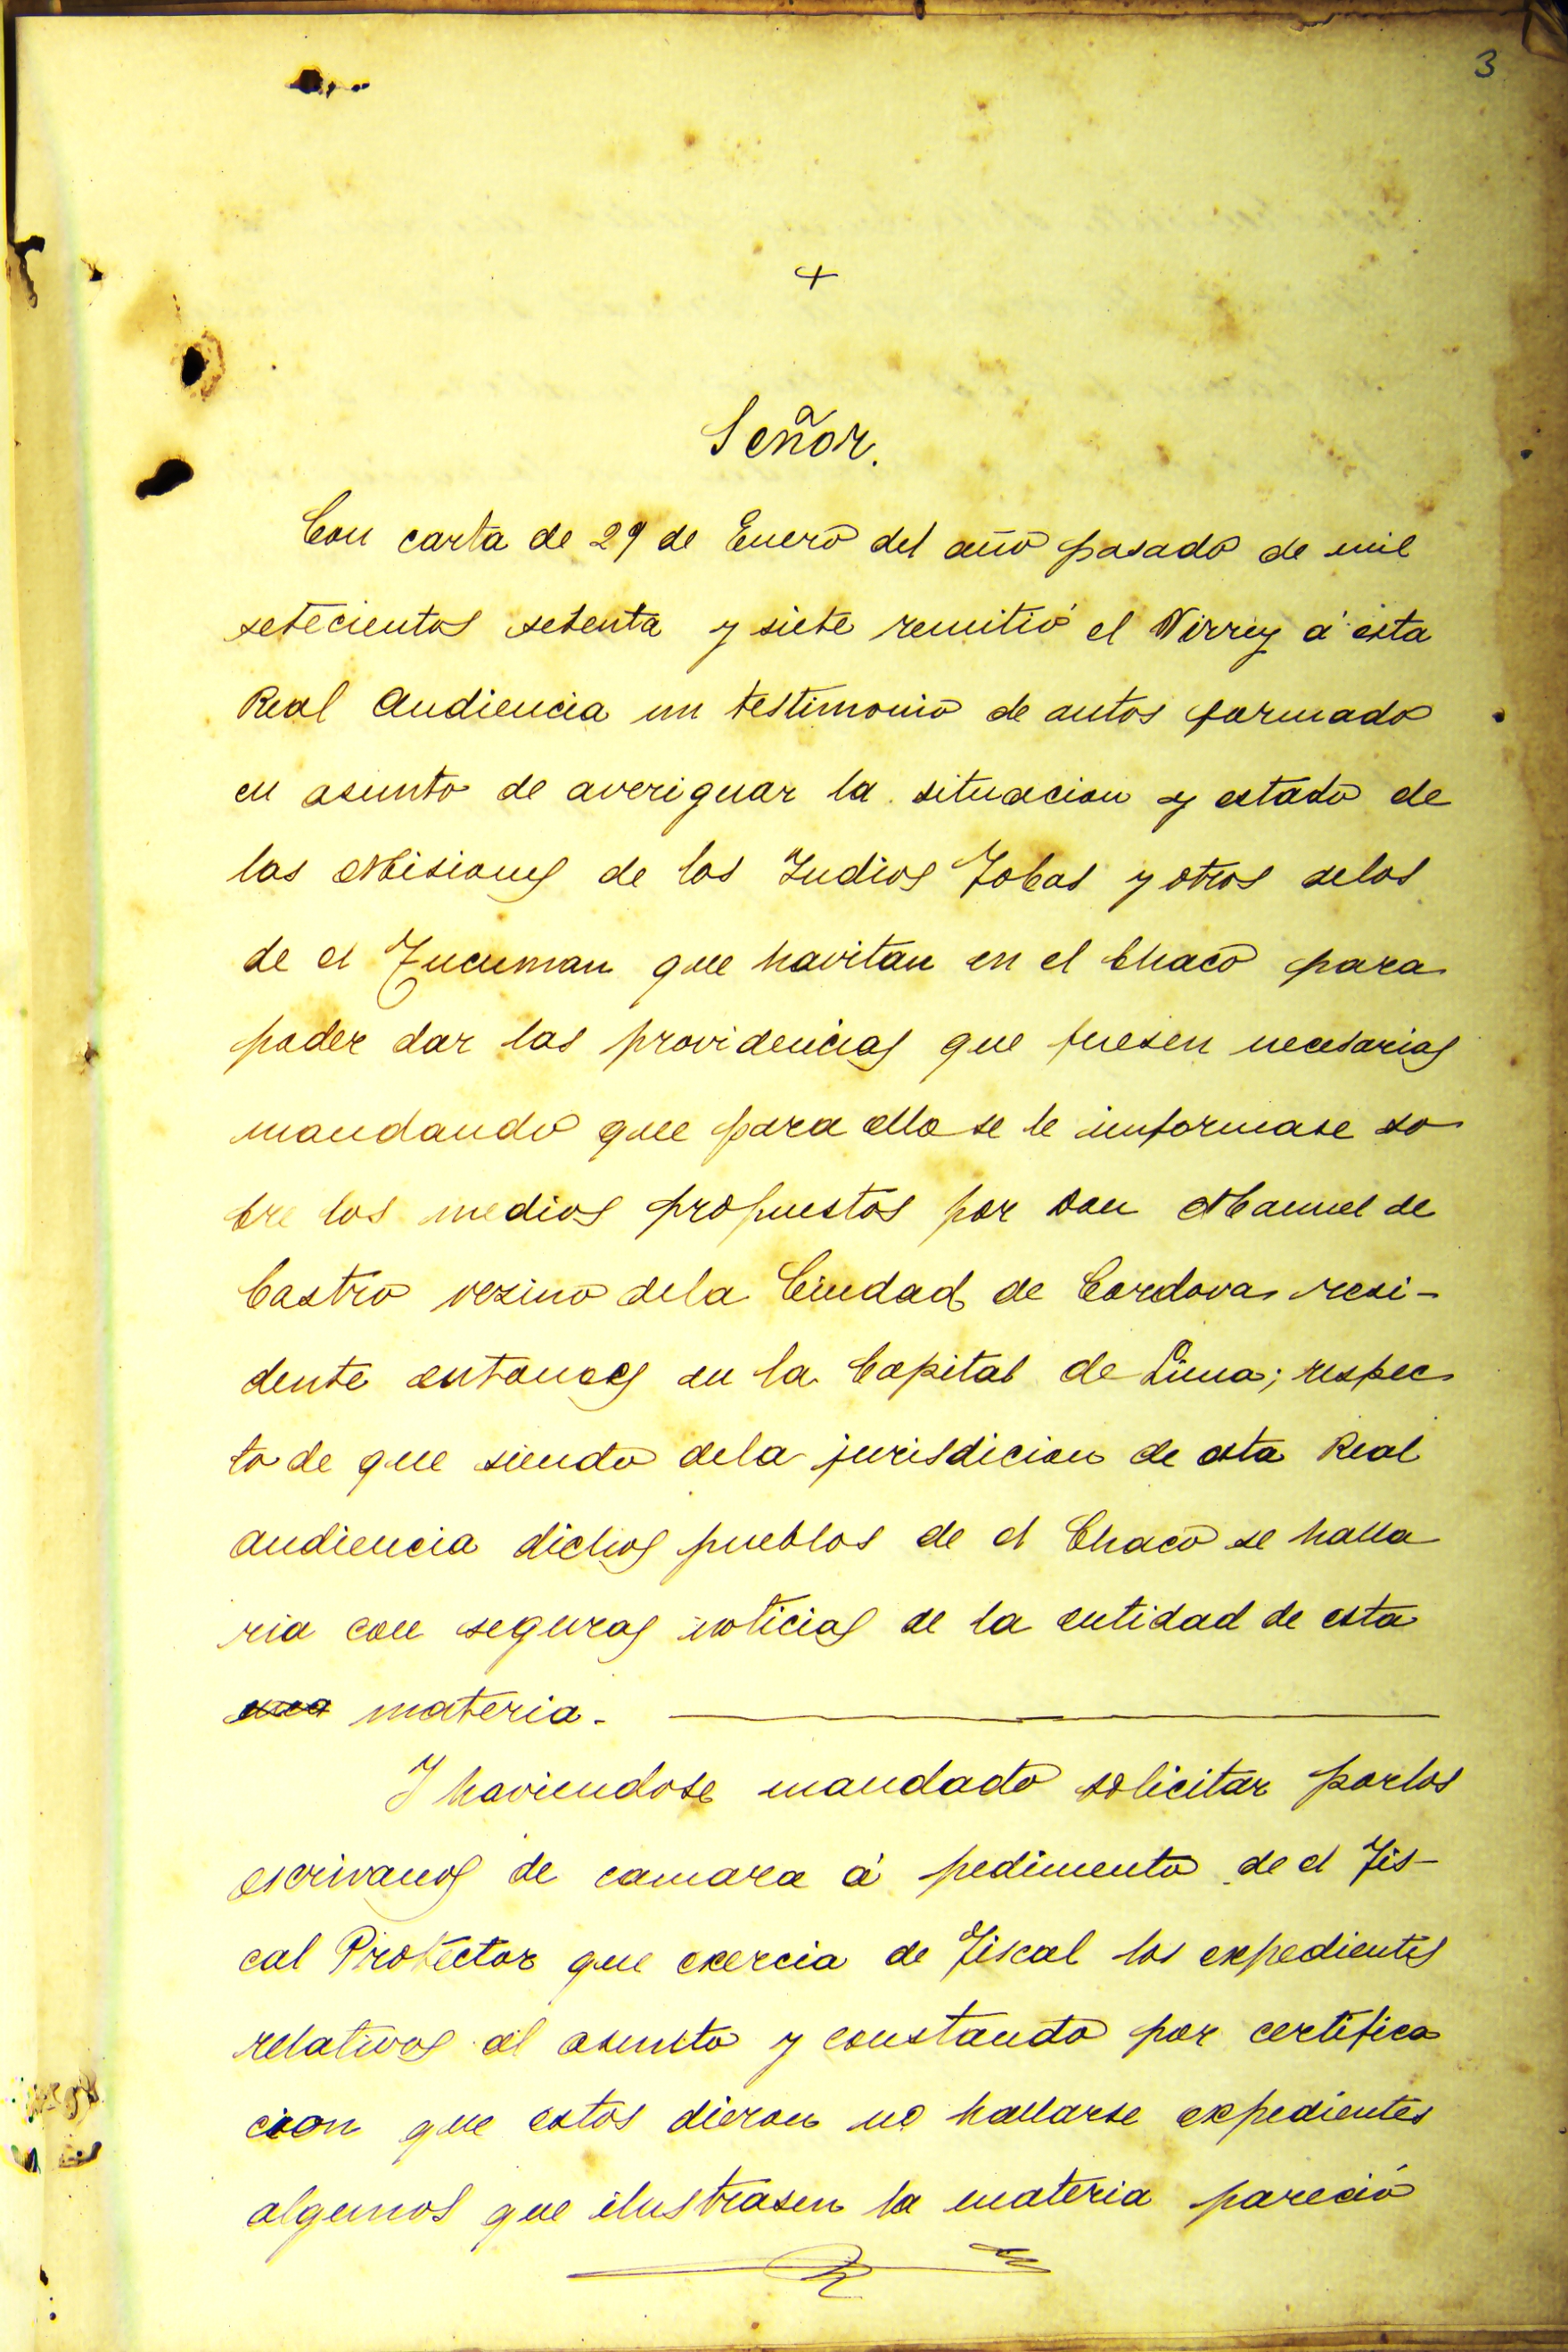 3
+
Señor.
Con carta de 29 de Enero del año pasado de mil
setecientos setenta y siete remitió el Virrey á esta
Real Audiencia un testimonio de autos formado
en asunto de averiguar la situacion y estado de
las Misiones de los Indios Tobas y otros delos
de el Tucuman que havitan en el Chaco para
poder dar las providencias que fuesen necesarias
mandando que para ello se le informase so
bre los medios propuestos por Don Manuel de
Castro vezino dela Ciudad de Cordova resi-
dente entonces en la Capital de Lima; respec
to de que siendo dela jurisdicion de esta Real
audiencia dichos pueblos de el Chaco se halla
ria con seguras noticias de la entidad de esta
materia.
Y haviendose mandado solicitar porlos
escrivanos de camara á pedimento de el Fis-
cal Protector que exercia de Fiscal los expedientes
relativos al asunto y constando por certifica
cion que estos dieron no hallarse expedientes
algunos que ilustrasen la materia pareció